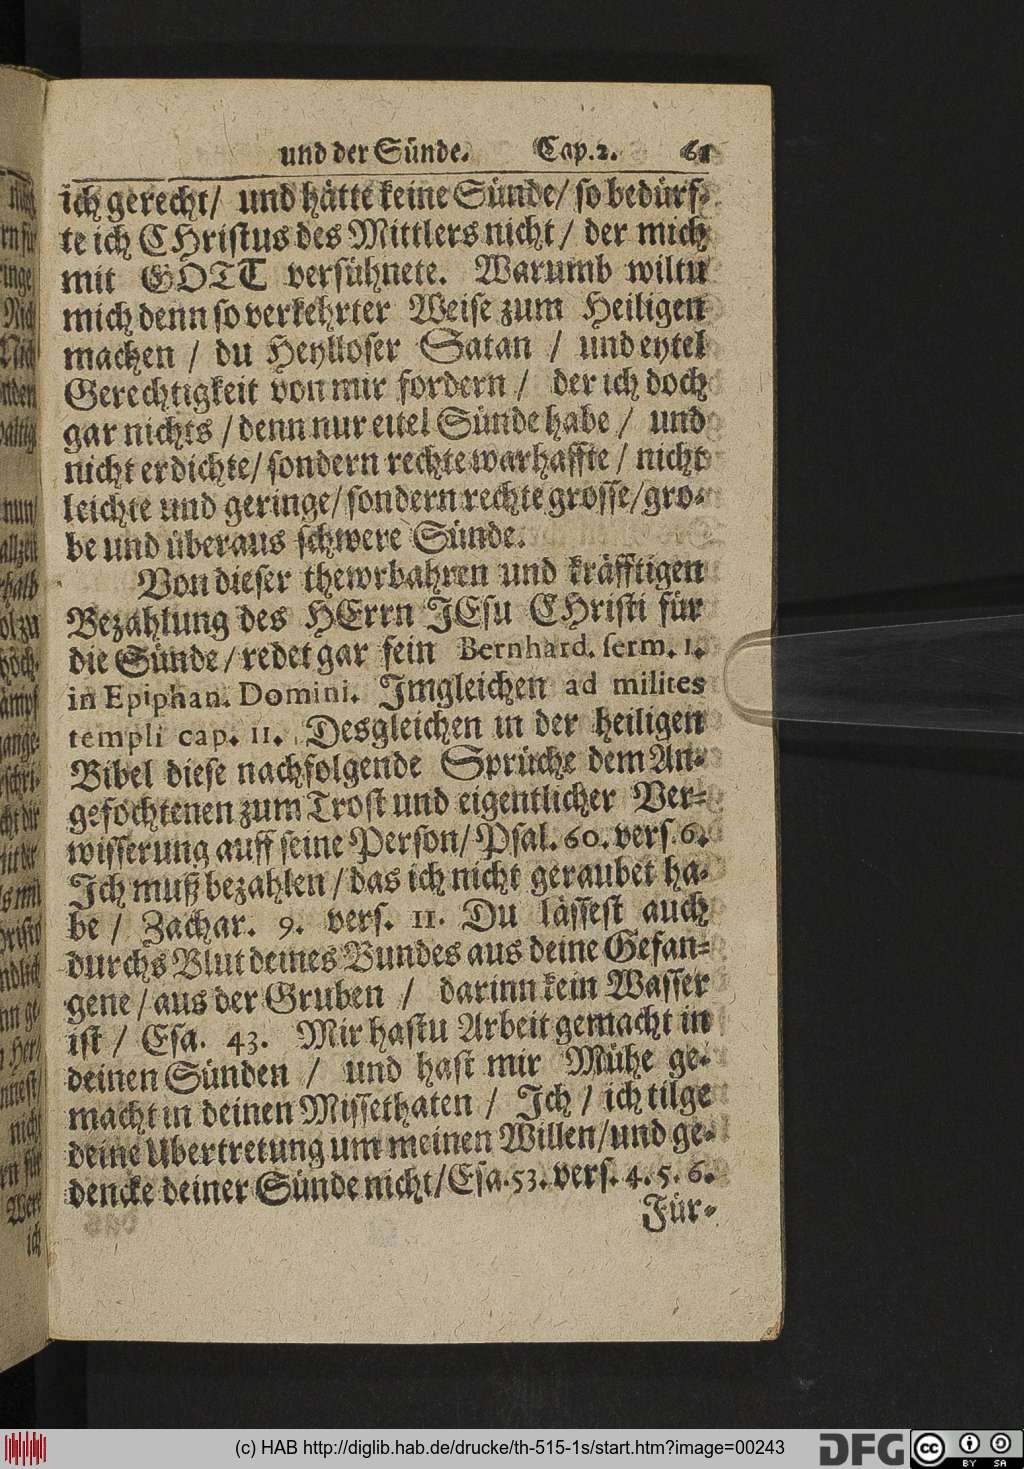 und der Sünde. Cap. 2. 61
ich gerecht/ und hätte keine Sünde/ so bedürf-
te ich CHristus des Mittlers nicht/ der mich
mit GOTT versühnete. Warumb wiltu
mich denn so verkehrter Weise zum Heiligen
machen / du Heylloser Satan / und eytel
Gerechtigkeit von mir fordern / der ich doch
gar nichts / denn nur eitel Sünde habe / und
nicht erdichte/ sondern rechte warhaffte / nicht
leichte und geringe/ sondern rechte grosse/ gro-
be und überaus schwere Sünde.
Von dieser thewrbahren und kräfftigen
Bezahlung des HErrn JEsu CHristi für
die Sünde / redet gar fein Bernhard. serm. 1.
in Epiphan. Domini. Jmgleichen ad milites
templi cap. 11. Desgleichen in der heiligen
Bibel diese nachfolgende Sprüche dem An-
gefochtenen zum Trost und eigentlicher Ver-
wisserung auff seine Person/ Psal. 60. vers. 6.
Jch muß bezahlen / das ich nicht geraubet ha-
be / Zachar. 9. vers. 11. Du lässest auch
durchs Blut deines Bundes aus deine Gefan-
gene / aus der Gruben / darinn kein Wasser
ist / Esa. 43. Mir hastu Arbeit gemacht in
deinen Sünden / und hast mir Mühe ge-
macht in deinen Missethaten / Jch / ich tilge
deine Ubertretung um meinen Willen/ und ge-
dencke deiner Sünde nicht/ Esa. 53. vers. 4. 5. 6.
Für-
(c) HAB http://diglib.hab.de/drucke/th-515-1s/start.htm?image=00243
DFG
cc BY SA